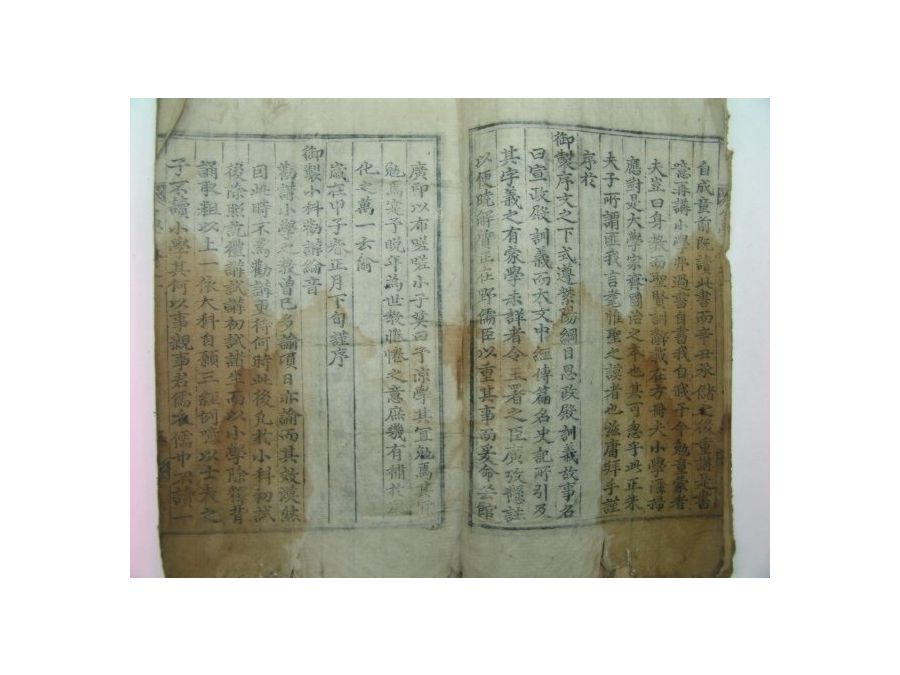 自成童前既讀此書而辛丑承儲之後重講是書
噫再講小學豈過書自書我自我乎今勉童蒙者
夫豈曰身教而聖賢訓辭載在方冊夫小學灑掃
應對是大學家齊國治之本也其可忽乎此正朱
夫子所謂匪我言耄惟聖之謨者也玆庸拜手謹
序於
御製序文之下式遵紫陽綱目思政殿訓義故事名
曰宣政殿訓義而大文中經傳篇名史記所引及
其字義之有蒙學未詳者令玉署之臣廣攷懸註
以便曉解贊正在野儒臣以重其事而爰命芸館
廣印以布嗟嗟小子莫曰予涼學其宜勉焉其
勉焉寔予晩年爲世教惓惓之意庶幾有補於
化之萬一云爾
歲在甲子春正月下旬謹序
御製小科勸講綸音
勸講小學之教曾已多諭頃日亦諭而其效漠然
因此時不爲勸講更待何時此後凡敎小科初試
後除照訖禮講試講初試諸生而以小學除
誦取粗以上一依大科自願三經例噫以士夫之
子不讀小學其何以事親事君儒名儒中不讀